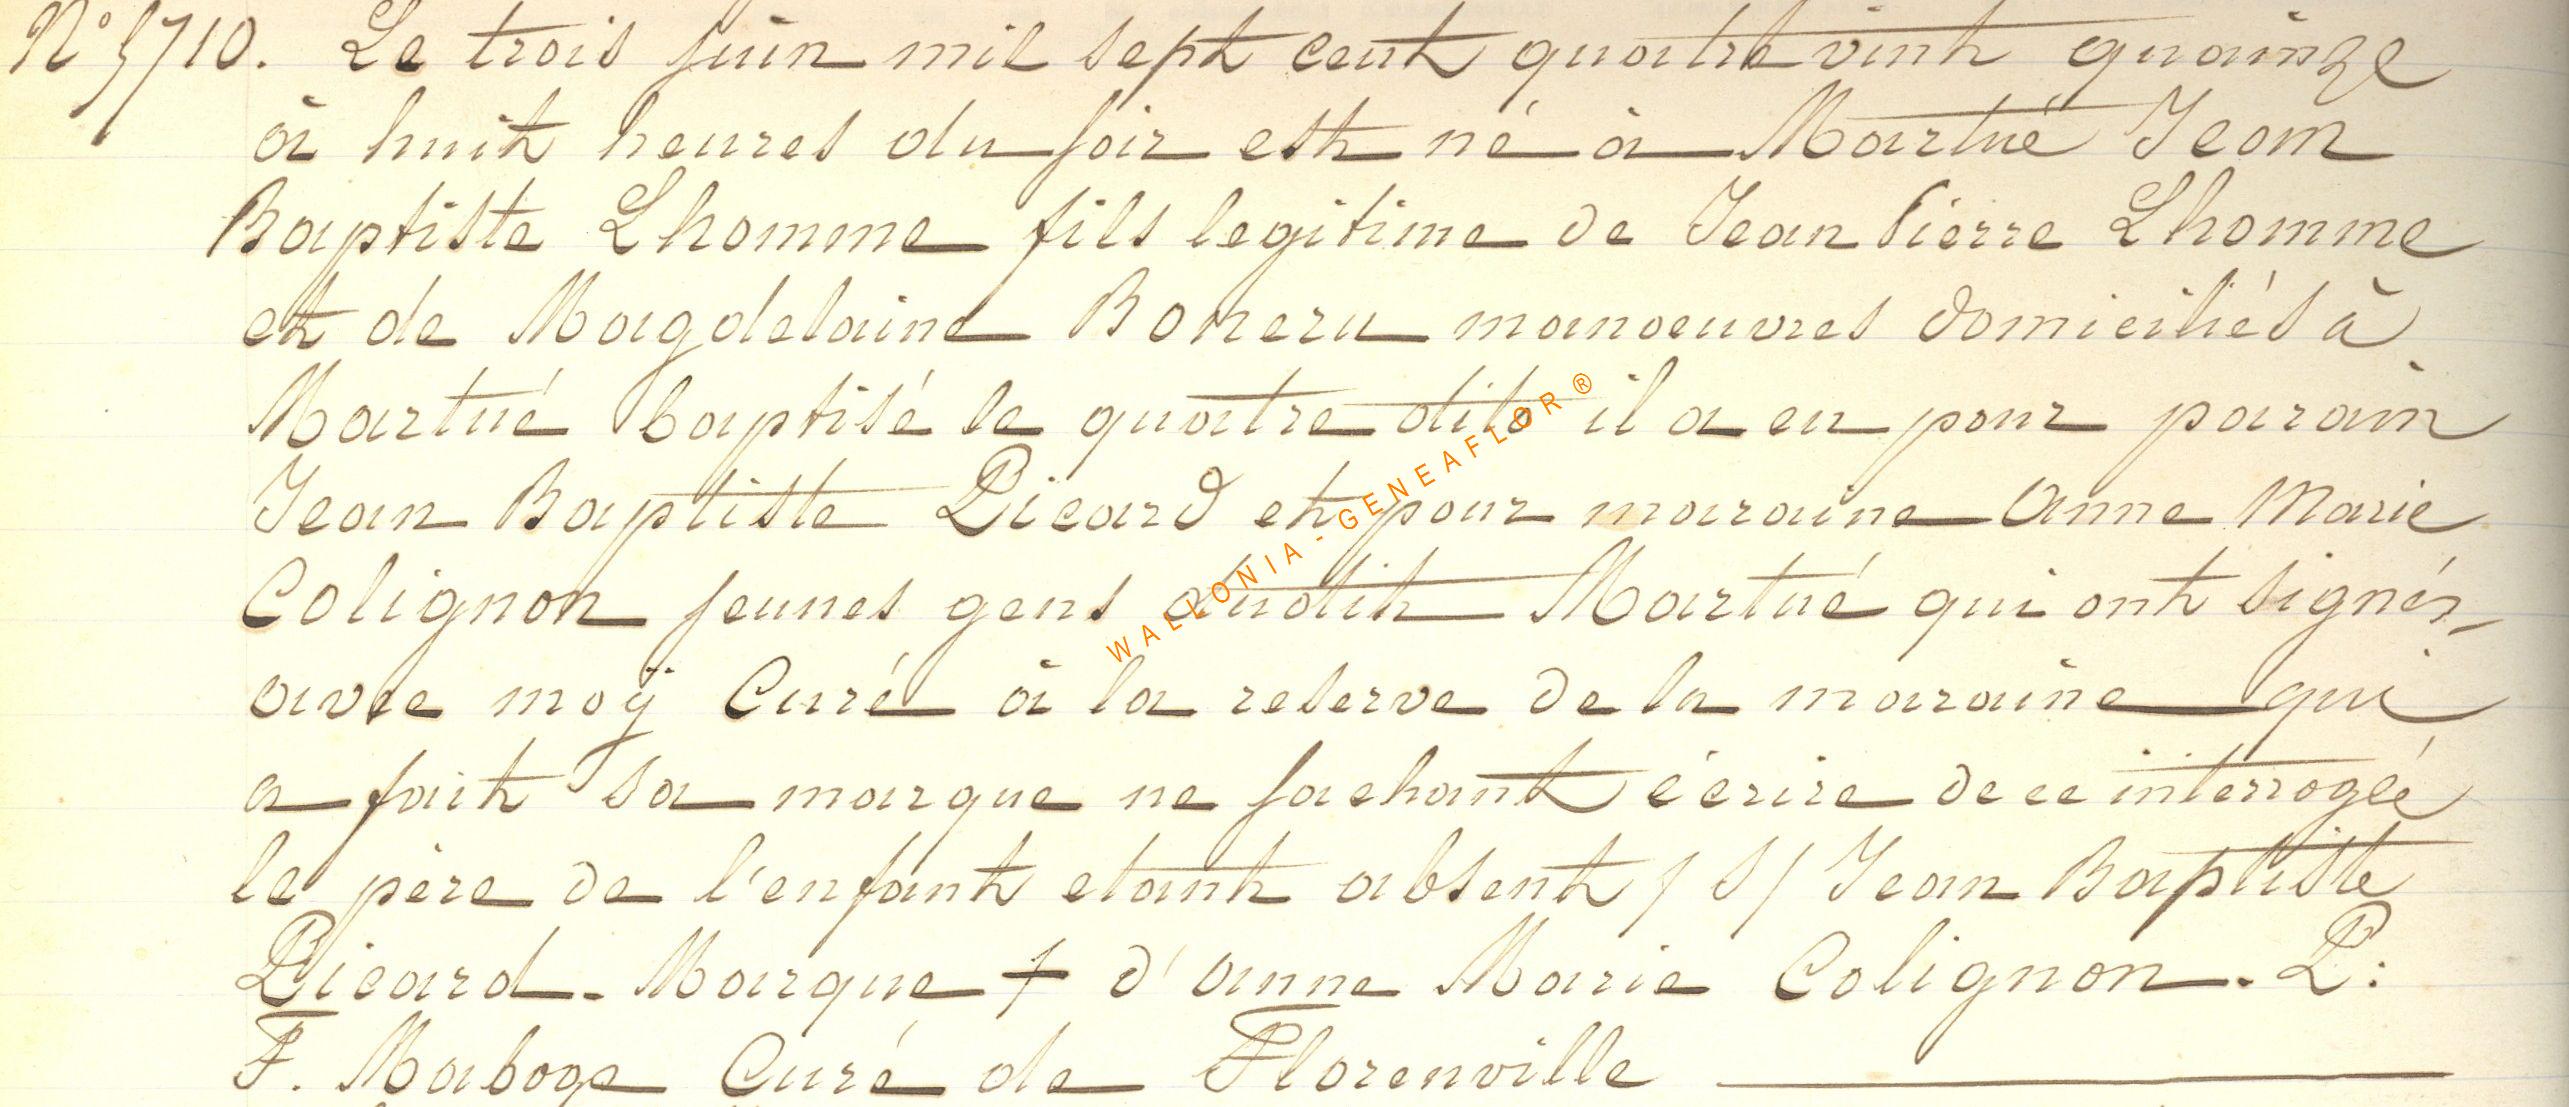 N° 5710. Le trois juin mil sept cent quatre vint quainze
à huit heures du soir est né à Martué Jean
Baptiste Lhomme fils legitime de Jean Pierre Lhomme
et de Magdelaine Boneru manoeuvres domiciliés à
Martué baptisé le quatre dito il a eu pour parain
Jean Baptiste Picard et pour maraine Anne Marie
Colignon jeunes gens audit Martué qui ont signés
avec moÿ Curé à la reserve de la maraine qui
a fait sa marque ne sachant écrire de ce interrogée
le père de l'enfant etant absent /S/ Jean Baptiste
Picard. Marque + d'anne Marie Colignon. P:
F. Maboge Curé de Florenville
WALLONIA-GENEAFLOR ®